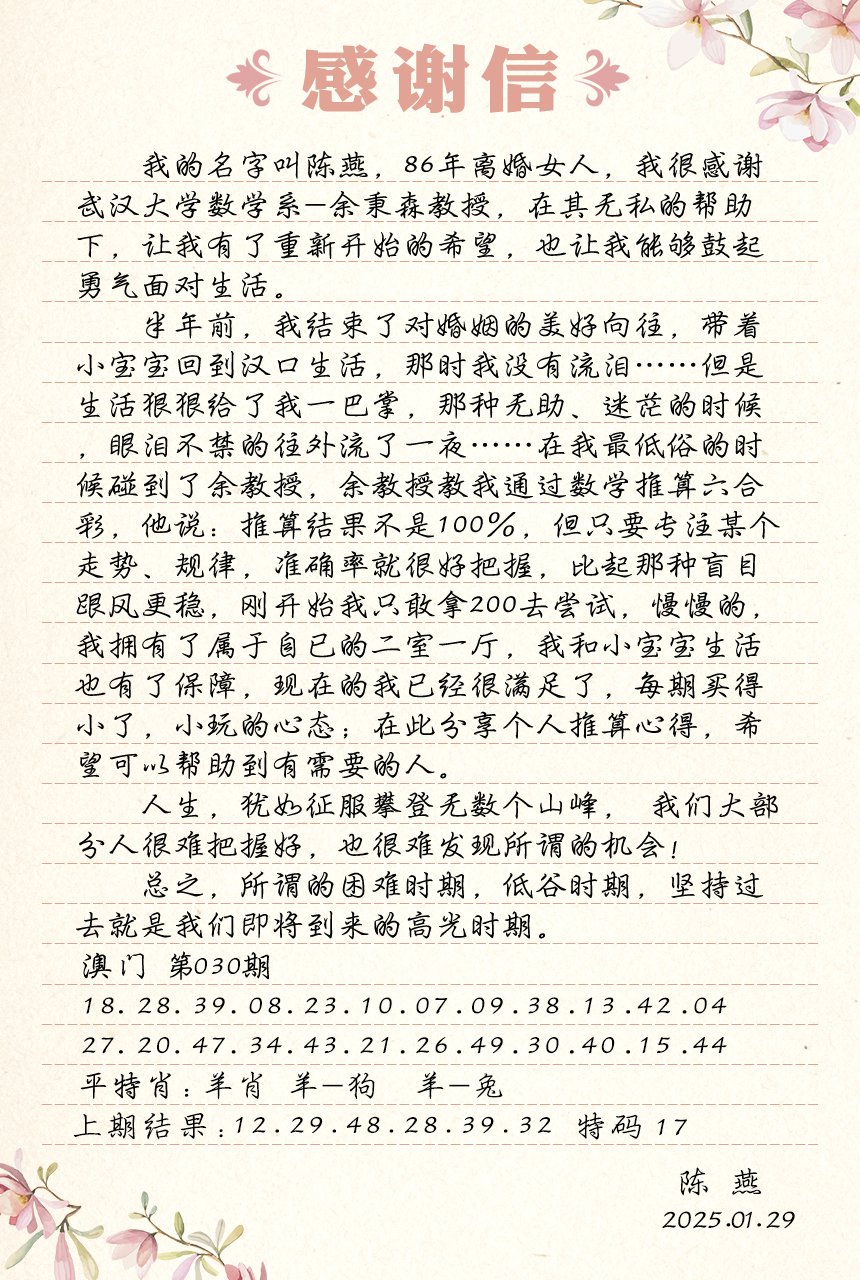 感谢信
我的名字叫陈燕，86年离婚女人，我很感谢
武汉大学数学系—余秉森教授，在其无私的帮助
下，让我有了重新开始的希望，也让我能够鼓起
勇气面对生活。
半年前，我结束了对婚姻的美好向往，带着
小宝宝回到汉口生活，那时我没有流泪……但是
生活狠狠给了我一巴掌，那种无助、迷茫的时候
，眼泪不禁的往外流了一夜……在我最低俗的时
候碰到了余教授，余教授教我通过数学推算六合
彩，他说：推算结果不是100%，但只要专注某个
走势、规律，准确率就很好把握，比起那种盲目
跟风更稳，刚开始我只敢拿200去尝试，慢慢的，
我拥有了属于自已的二室一厅，我和小宝宝生活
也有了保障，现在的我已经很满足了，每期买得
小了，小玩的心态；在此分享个人推算心得，希
望可以帮助到有需要的人。
人生，犹如征服攀登无数个山峰， 我们大部
分人很难把握好，也很难发现所谓的机会！
总之，所谓的困难时期，低谷时期，坚持过
去就是我们即将到来的高光时期。
澳门 第030期
18.28.39.08.23.10.07.09.38.13.42.04
27.20.47.34.43.21.26.49.30.40.15.44
平特肖：羊肖 羊—狗 羊—兔
上期结果：12.29.48.28.39.32 特码 17
陈 燕
2025.01.29